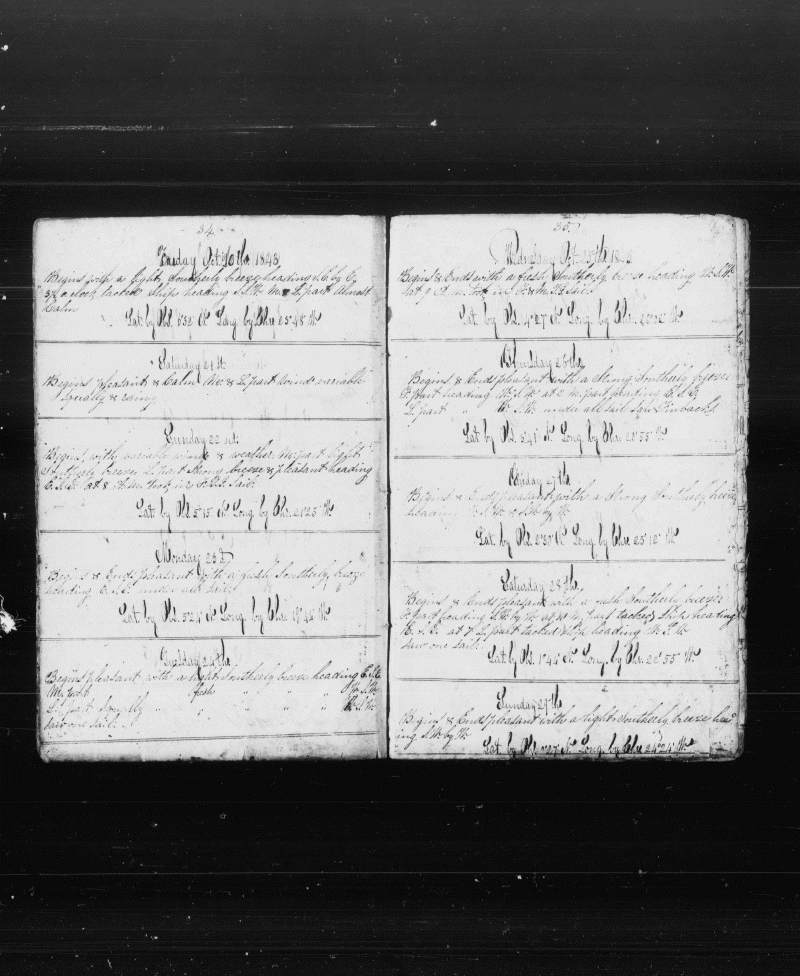 34
Friday Oct 20th 1843
Begins with a light Southerly breeze heading S.E. by E.
o clock tacked Ship heading S.S.W. M & L part Almost
Calm
Lat by Obs. 5°32' N Long. by Chr. 23°48' W
Saturday 21st
Begins pleasant & Calm M & L part winds variable
Squally & rainy
Sunday 22nd
Begins with variable winds & weather M part light
Southerly breezes L part Strong breeze & pleasant heading
E.S.E. at 8 took in Sail
Lat by Obs 5°15' N Long by Chr. 21°25' W
Monday 23d
Begins & Ends pleasant with a fresh Southerly breeze
heading under all Sail
Lat by Obs 5°24' N Long by Chr 19°42' W
Tuesday 24th
Begins pleasant with a light Southerly breeze heading E.S.E.
M part fresh " " " " W.S.W.
L part Squally " " " " " W.S.W
Saw one Sail
35
Wednesday Oct 25th
Begins & Ends with a fresh Southerly breeze heading W.S.W.
at 9 took in Sails
Lat by Obs. 4°27' N Long. by Chr. 20°02' W
Thursday 26th
Begins & Ends pleasant with a Strong Southerly breeze
F part heading W.S.W at 2 M part heading E.S.E.
L part " W.S.W. under all sail Saw Finbacks
Lat by Obs. 3°41' N Long by Chr 20°55' W
Friday 27th
Begins & Ends pleasant with a Strong Southerly breeze
heading S.W. & S.W. by W.
Lat. by Obs 2°30' N Long. by Chr 23°12' W
Saturday 28th
Begins & Ends pleasant with a fresh Southerly breeze
F part heading S.W. by W. at 10 M part tacked Ship heading
E.S.E. at 7 L part tacked Ship heading W.S.W.
Saw one Sail
Lat by Obs. 1°44' N Long. by Chr. 22°55' W
Sunday 29th
Begins & Ends pleasant with a light Southerly breeze head
ing S.W. by W.
Lat by Obs 0°27' N Long. by Chr 24°24' W